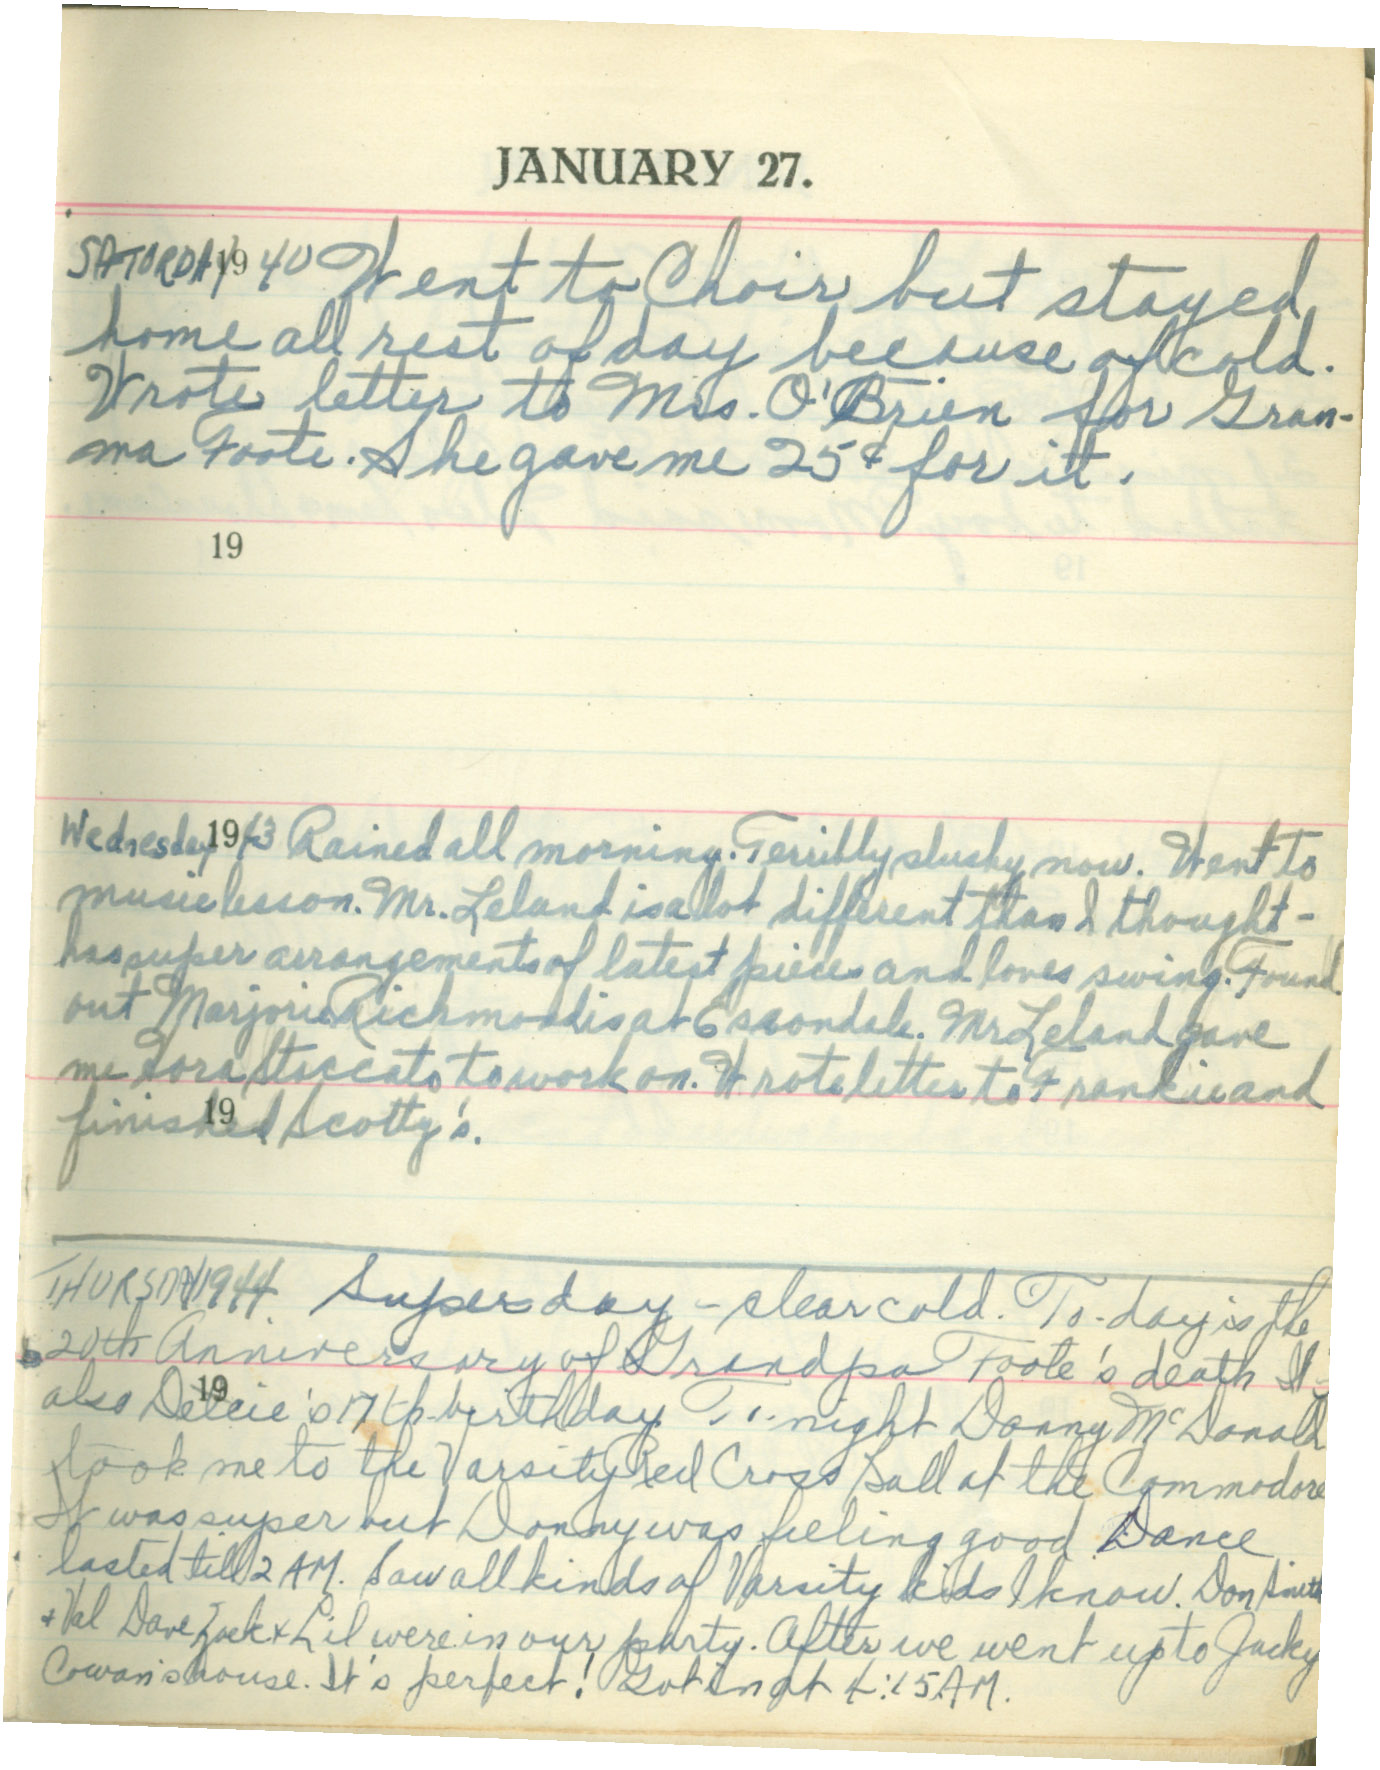 JANUARY 27.
SATURDAY 1940 Went to Choir but stayed
home all rest of day because of cold.
Wrote letter to Mrs. O'Brien for Gran-
ma Foote. She gave me 25¢ for it.
19
Wednesday 1943 Rained all morning. Terribly slushy now. Went to
music lesson. Mr. Leland is a lot different than I thought -
has super arrangements of latest pieces and loves swing. Found
out Marjorie Richmond is at Essondale. Mr Leland gave
me Hora Staccato to work on. Wrote letter to Frankie and
19
finished Scotty's.
THURSDAY 1944 Super day - clear cold. To-day is the
20th Anniversary of Grandpa Foote's death It's
19
also Delcie's 17th birthday. To-night Danny McDonald
took me to the Varsity Red Cross Ball at the Commodore
It was super but Danny was feeling good. Dance
lasted till 2 AM. Saw all kinds of Varsity kids I know. Don Smith
+ Val Dave Zack + Lil were in our party. After we went up to Jacky
Cowan's house. It's perfect! Got in at 4:15 AM.